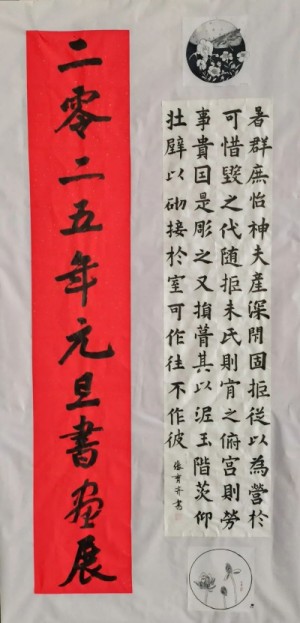 二零二五年元旦書画展
暑群庶怡神夫產深閇固拒従以為營於
可惜毀之代随拒未氏則肯之俯宮則勞
事貴囙是彫之又損葺其以泥玉階茨仰
壮壁以砌接於室可作往不作彼